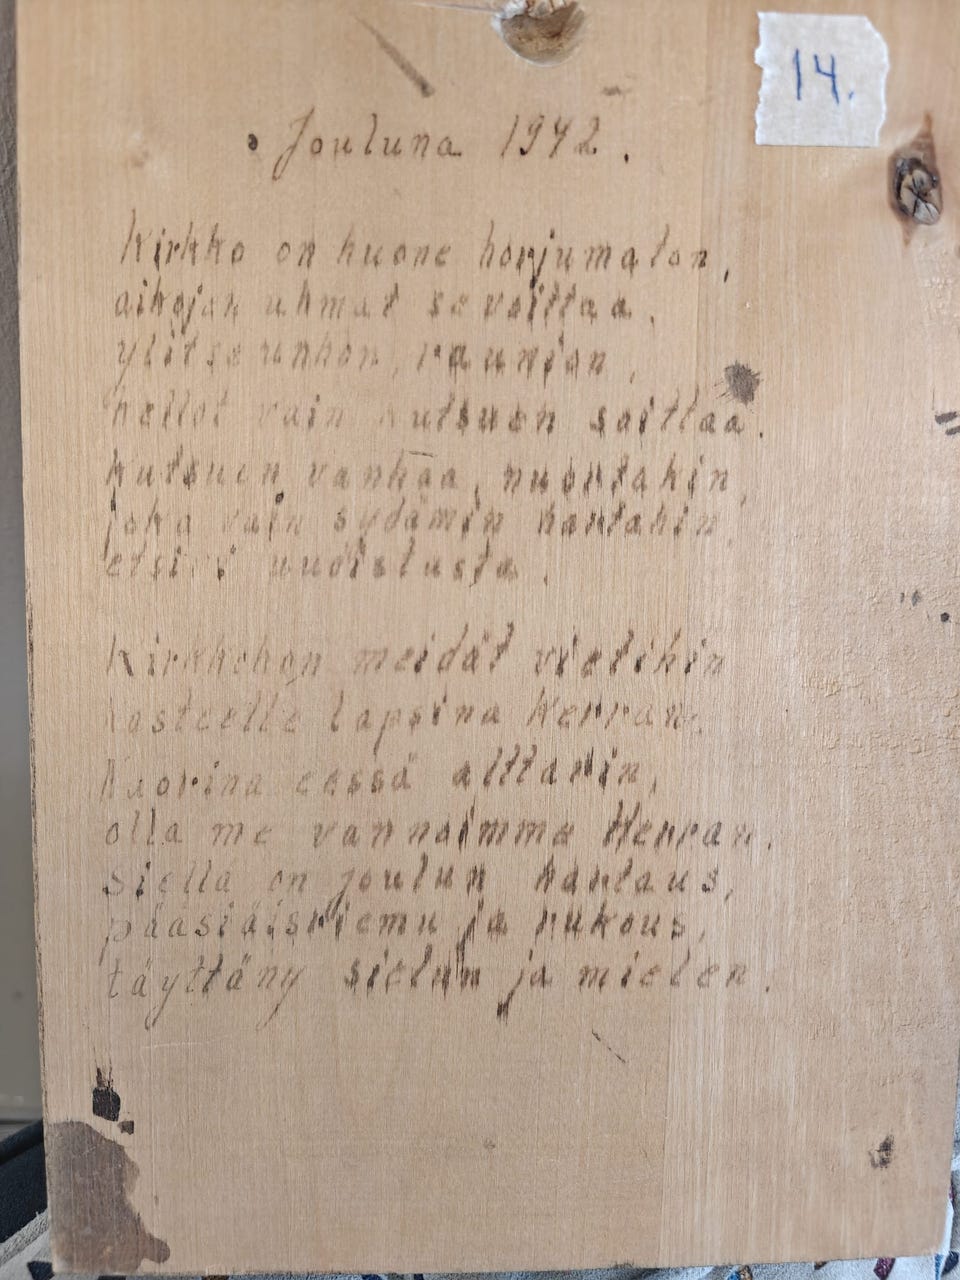 14.
Jouluna 1942.
Kirkko on huone horjumaton,
aikojen uhmat se voittaa,
ylitse unhon, raunion,
kellot vain kutsuen soittaa.
Kutsuen vanhaa, nuortakin,
joka vain sydämin hartahin
etsivi uudistusta.
Kirkkohon meidät vietihin
kasteelle lapsina Herran.
Nuorina eessä alttarin,
olla me vannoimme Herran.
Siellä on joulun hartaus,
pääsiäisriemu ja rukous,
täyttäny sielun ja mielen.